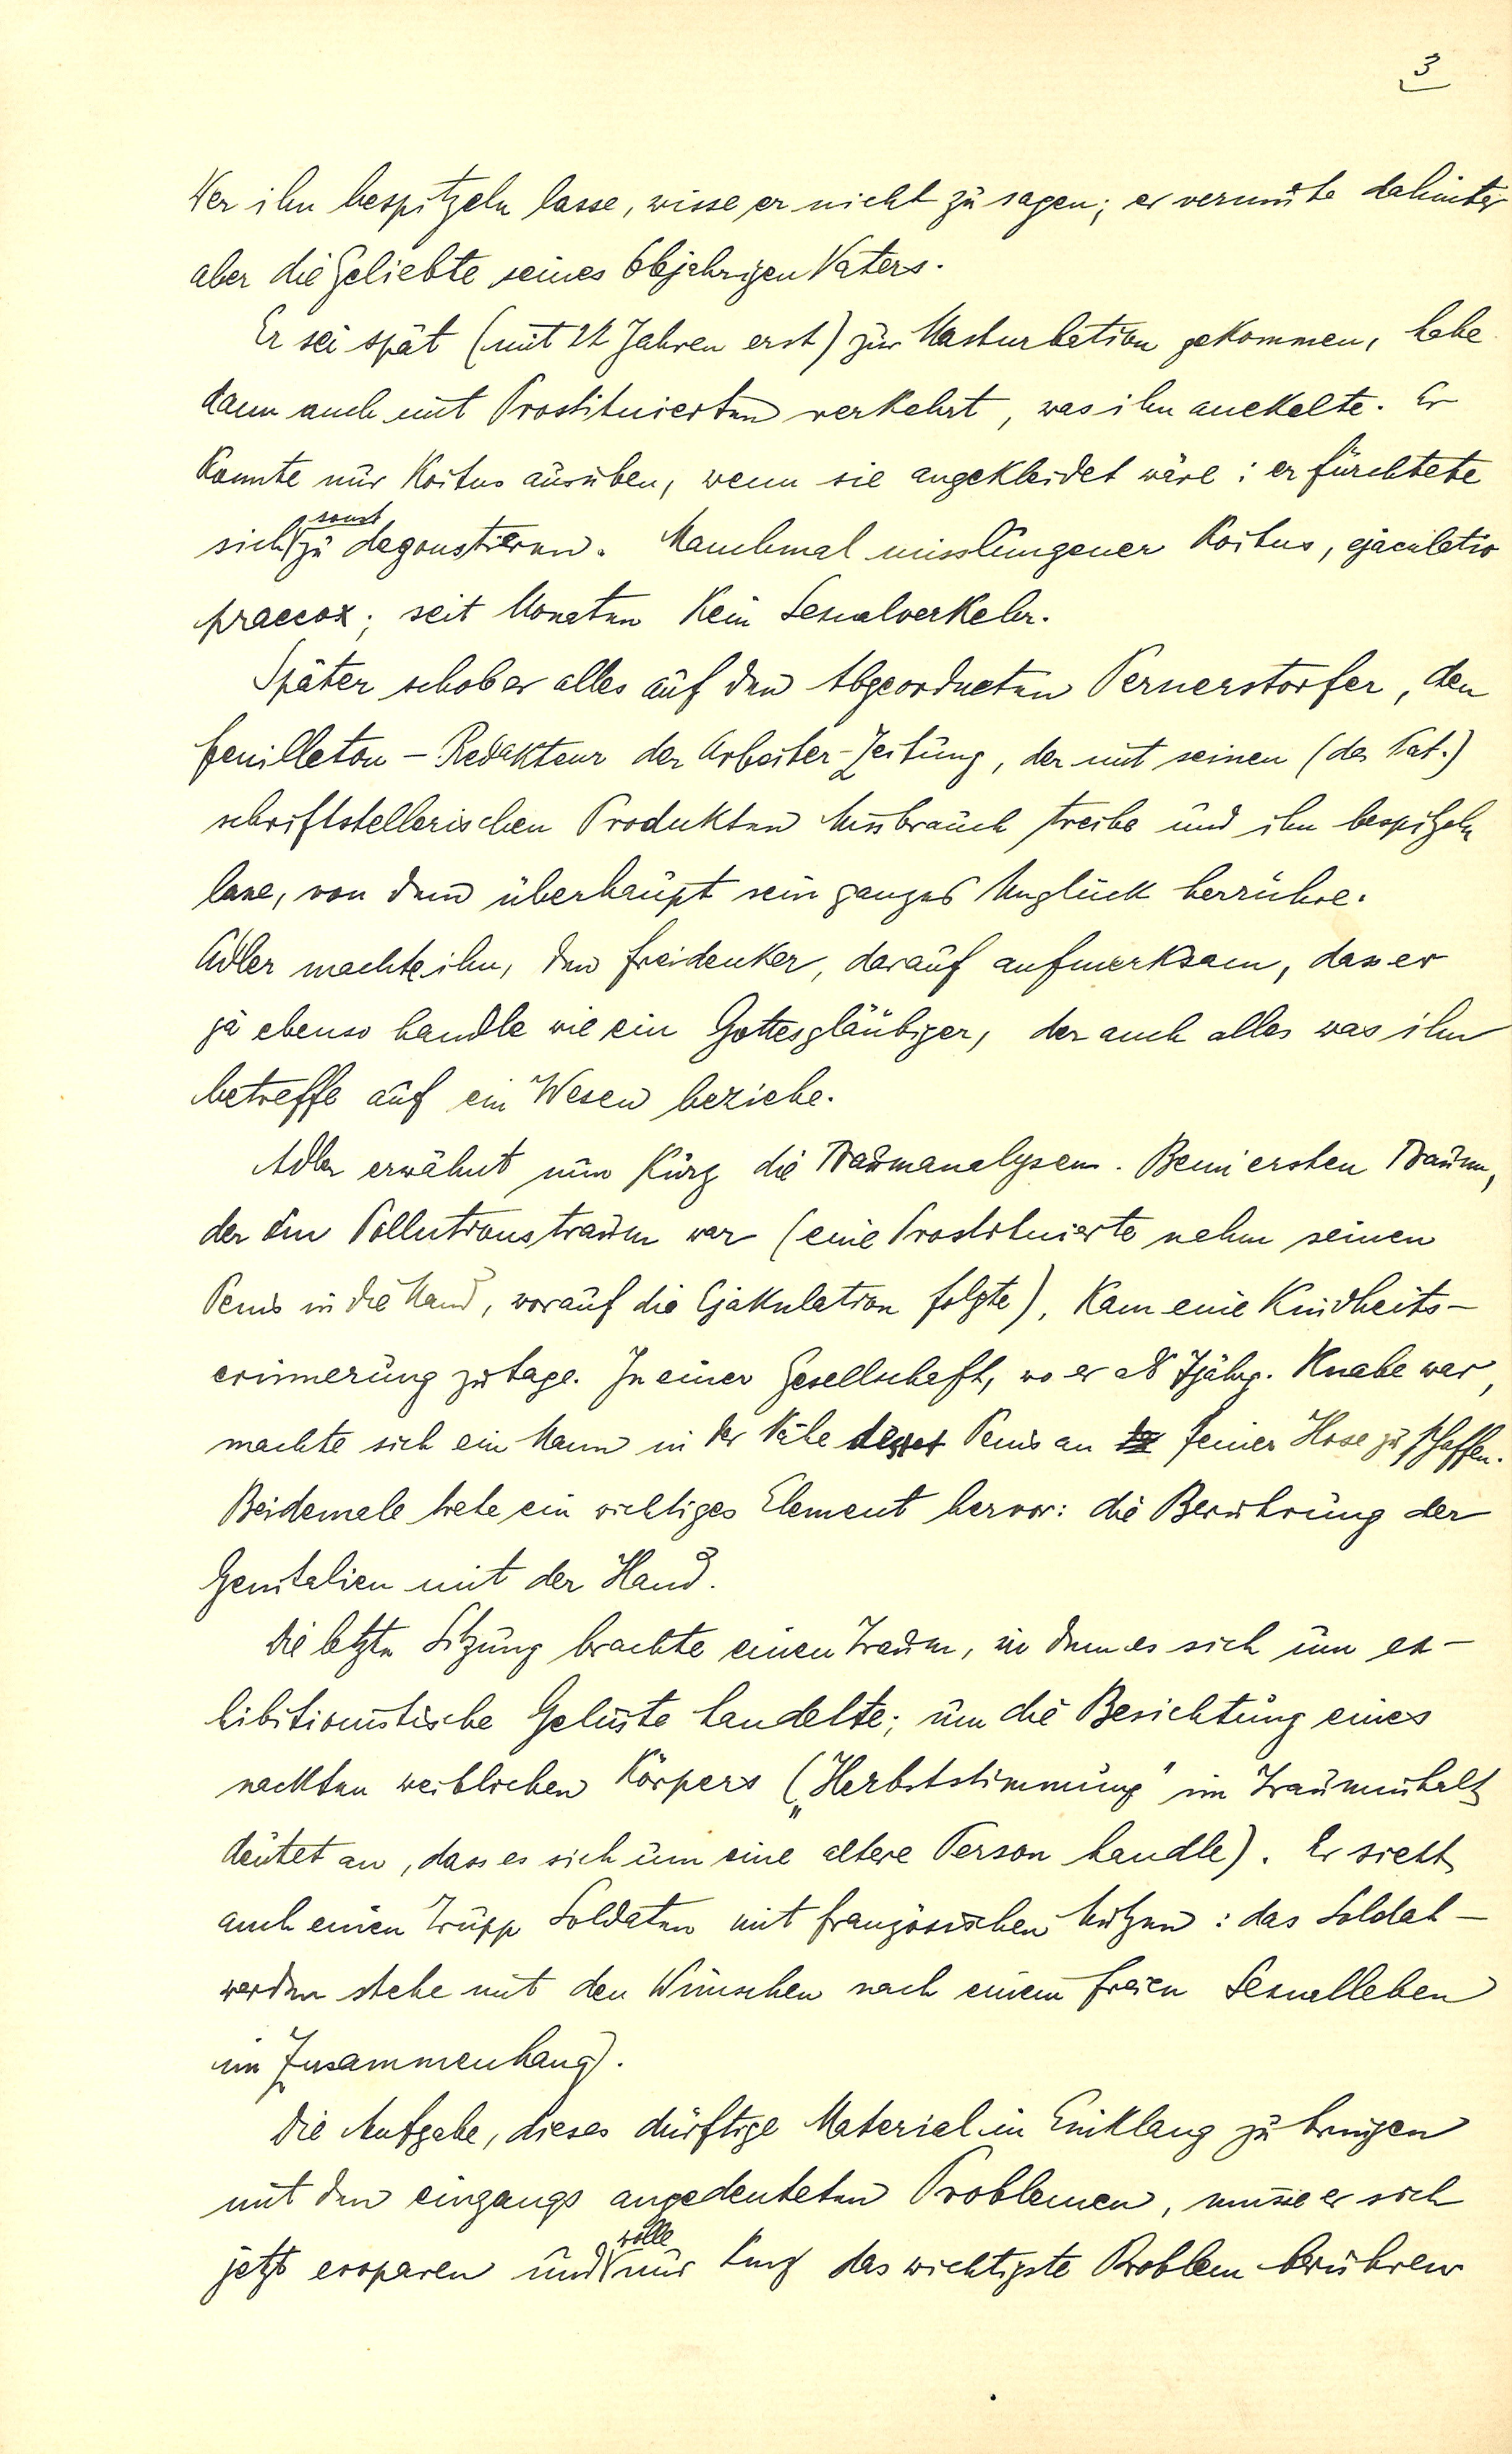 3
Wer ihn bespitzeln lasse, wisse er nicht zu sagen; er vermute dahinter
aber die Geliebte seines 66jahrigen Vaters.
Er sei spät (mit 22 Jahren erst) zur Masturbation gekommen, habe
dann auch mit Prostituierten verkehrt, was ihn anekelte. Er
konnte nur Koitus ausüben, wenn sie angekleidet wäre: er fürchtete
sonst
sich zu degoustieren. Manchmal misslungener Koitus, ejaculatio
praecox; seit Monaten kein Sexualverkehr.
Später schob er alles auf den Abgeordneten Pernerstorfer, den
Feuilleton-Redakteur der Arbeiter-Zeitung, der mit seinen (des Pat.)
schriftstellerischen Produkten Missbrauch treibe und ihn bespitzeln
lasse, von dem überhaupt sein ganzes Unglück herrühre.
Adler machte ihn, den Freidenker, darauf aufmerksam, dass er
ja ebenso handle wie ein Gottesgläubiger, der auch alles was ihn
betreffe auf ein Wesen beziehe.
Adler erwähnt nun kurz die Traumanalysen. Beim ersten Traum,
der ein Pollutionstraum war (eine Prostituierte nahm seinen
Penis in die Hand, worauf die Ejakulation folgte), kam eine Kindheits-
erinnerung zutage. In einer Gesellschaft, wo er als 7jähr. Knabe war,
machte sich ein Mann in der Nähe Penis an seiner Hose zu schaffen.
Beidemale trete ein wichtiges Element hervor: die Berührung der
Genitalien mit der Hand.
Die letzte Sitzung brachte einen Traum, in dem es sich um ex-
hibitionistische Gelüste handelte; um die Besichtung eines
nackten weiblichen Körpers („Herbststimmung" im Trauminhalt
deutet an, dass es sich um eine altere Person handle). Er sieht
auch einen Trupp Soldaten mit französischen Mützen: das Soldat-
werden stehe mit den Wünschen nach einem freien Sexualleben
im Zusammenhang.
Die Aufgabe, dieses dürftige Material in Einklang zu bringen
mit den eingangs angedeuteten Problemen, müsse er sich
wolle
jetzt ersparen und nur kurz das wichtigste Problem berühren